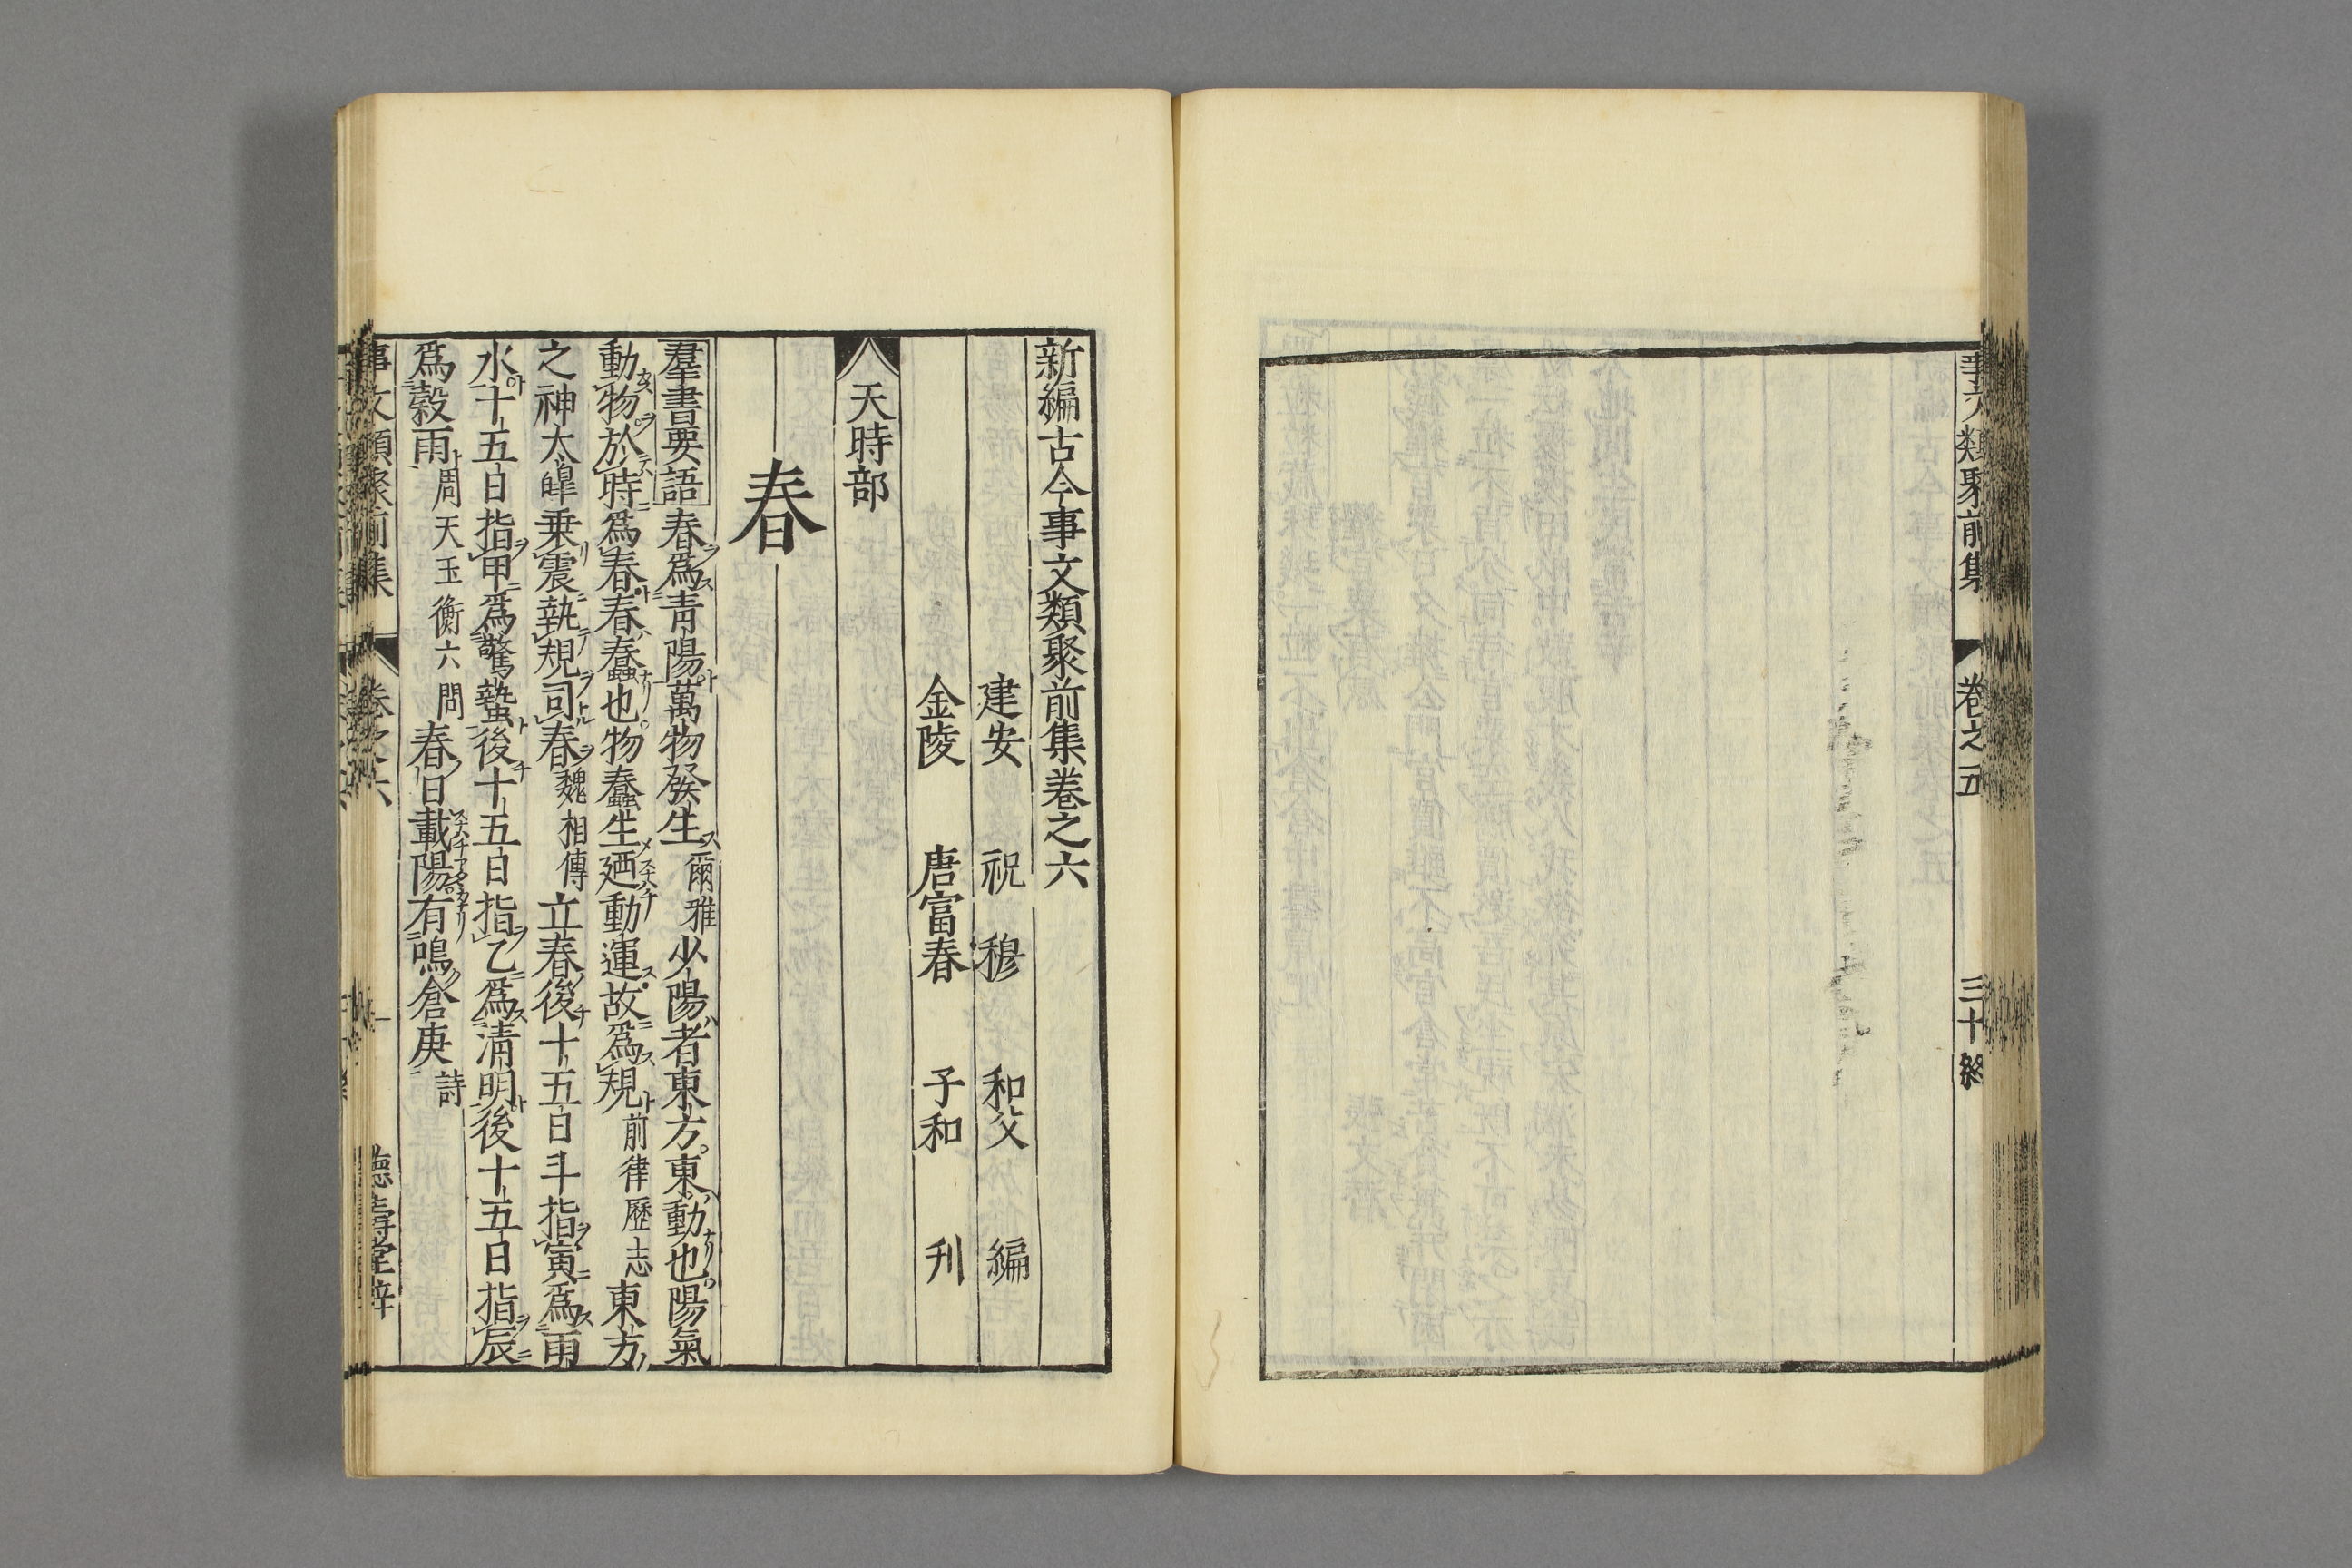 事文類聚前集 卷之五 三十終
新編古今事文類聚前集卷之六
建安 祝 穆 和父 編
金陵 唐富春 子和 刋
天時部
春
羣書要語春爲青陽萬物發生爾雅少陽者東方東動也陽氣
動物於時爲春春蠢也物蠢生廼動運故爲規前律歷志東方
之神太皡乘震執規司春魏相傳立春後十五日斗指寅爲雨
水十五日指甲爲驚蟄後十五日指乙爲清明後十五日指辰
爲穀雨周天玉衡六問春日載陽有鳴倉庚詩
事文類聚前集 卷之六 一 德壽堂梓